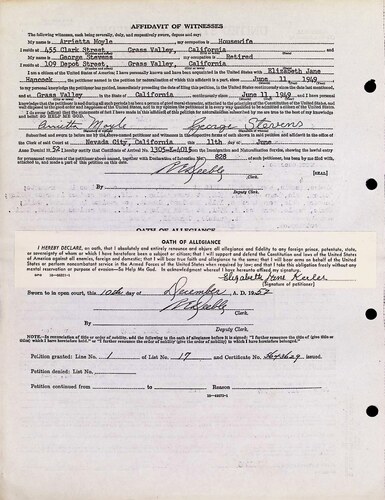 AFFIDAVIT OF WITNESSES
The following witnesses, each being severally, duly, and respectively sworn, depose and say:
My name is Arrietta Moyle, my occupation is Housewife
I reside at 455 Clark Street, Grass Valley, California
My name is George Stevens, my occupation is Retired
I reside at 109 Depot Street, Grass Valley, California
I am a citizen of the United States of America; I have personally known and have been acquainted in the United States with Elizabeth Jane
Hancock, the petitioner named in the petition for naturalization of which this affidavit is a part, since June 11, 1949
to my personal knowledge the petitioner has resided, immediately preceding the date of filing this petition, in the United States continuously since the date last mentioned,
and at Grass Valley, in the State of California continuously since June 11, 1949 and I have personal
knowledge that the petitioner is and during all such periods has been a person of good moral character, attached to the principles of the Constitution of the United States,
and well disposed to the good order and happiness of the United States, and in my opinion the petitioner is in every way qualified to be admitted a citizen of the United States.
I do swear (affirm) that the statements of fact I have made in this affidavit of this petition for naturalization subscribed by me are true to the best of my knowledge
and belief: SO HELP ME GOD.
Arrietta Moyle George Stevens
Subscribed and sworn to before me by the above-named petitioner and witnesses in the respective forms of oath shown in said petition and affidavit in the office of
the Clerk of said Court at Nevada City, California this 11th day of June
Anno Domini 19 52 I hereby certify that Certificate of Arrival No. 1305-K-4015 from the Immigration and Naturalization Service, showing the lawful entry
for permanent residence of the petitioner above named, together with Declaration of Intention No. 828 of such petitioner, has been by me filed with,
attached to, and made a part of this petition on this date.
Clerk.
[SEAL]
By
Deputy Clerk.
OATH OF ALLEGIANCE
OATH OF ALLEGIANCE
I HEREBY DECLARE, on oath, that I absolutely and entirely renounce and abjure all allegiance and fidelity to any foreign prince, potentate, state,
or sovereignty of whom or which I have heretofore been a subject or citizen; that I will support and defend the Constitution and laws of the United States
of America against all enemies, foreign and domestic; that I will bear true faith and allegiance to the same; that I will bear arms on behalf of the United
States or perform noncombatant service in the Armed Forces of the United States when required by law; and that I take this obligation freely without any
mental reservation or purpose of evasion—So Help Me God. In acknowledgment whereof I have hereunto affixed my signature.
Elizabeth Jane
(Signature of petitioner)
Sworn to in open court, this 10th day of December A. D. 1952
Clerk.
By
Deputy Clerk.
NOTE.—In renunciation of title or order of nobility, add the following to the oath of allegiance before it is signed: "I further renounce the title of (give title or
titles) which I have heretofore held," or "I further renounce the order of nobility (give the order of nobility) to which I have heretofore belonged."
Petition granted: Line No. 1 of List No. 17 and Certificate No. issued.
Petition denied: List No.
Petition continued from to Reason